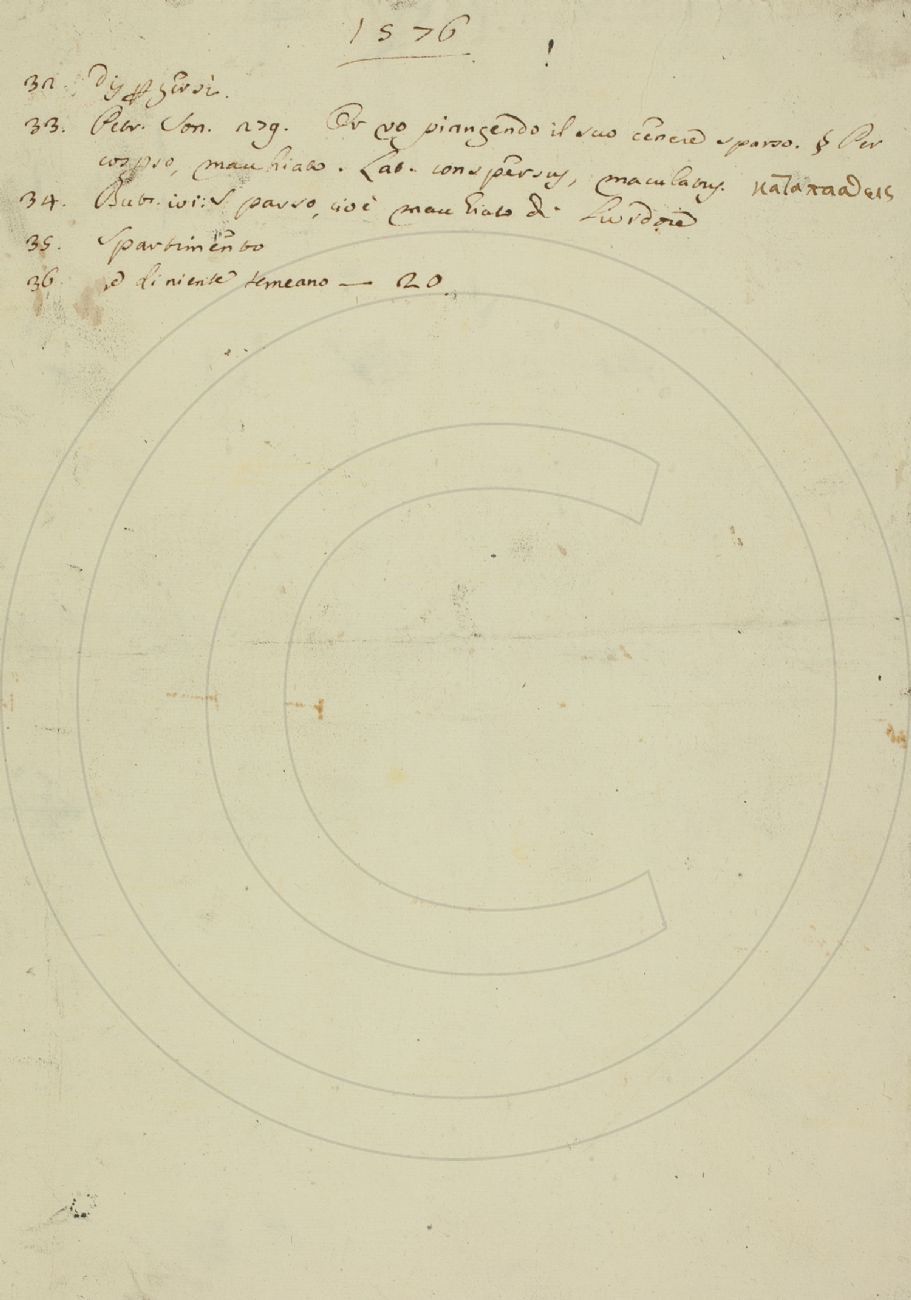 1576
32. 
33. Petr. Son. 279. Or vo piangendo il suo cenere sparso. § Per
cosperso, macchiato. Lat. conspersus, maculatus.
34. Buti. ivi: Sparso, cioè macchiato di Lordore
35. Spartimento
36. e di niente temeano — 20